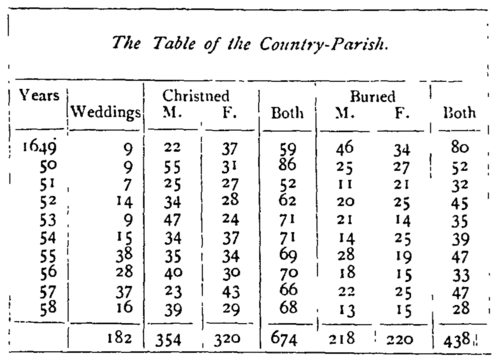 The Table of the Country-Parish.
Years Weddings Christned M. F. Both Buried M. F. Both
1649 9 22 37 59 46 34 80
50 9 55 31 86 25 27 52
51 7 25 27 52 11 21 32
52 14 34 28 62 20 25 45
53 9 47 24 71 21 14 35
54 15 34 37 71 14 25 39
55 38 35 34 69 28 19 47
56 28 40 30 70 18 15 33
57 37 23 43 66 22 25 47
58 16 39 29 68 13 15 28
182 354 320 674 218 220 438